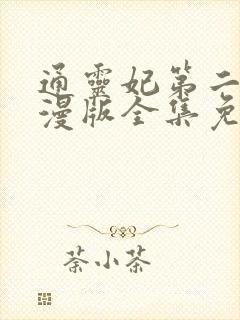 通靈妃第二
漫版全集免
荼小茶